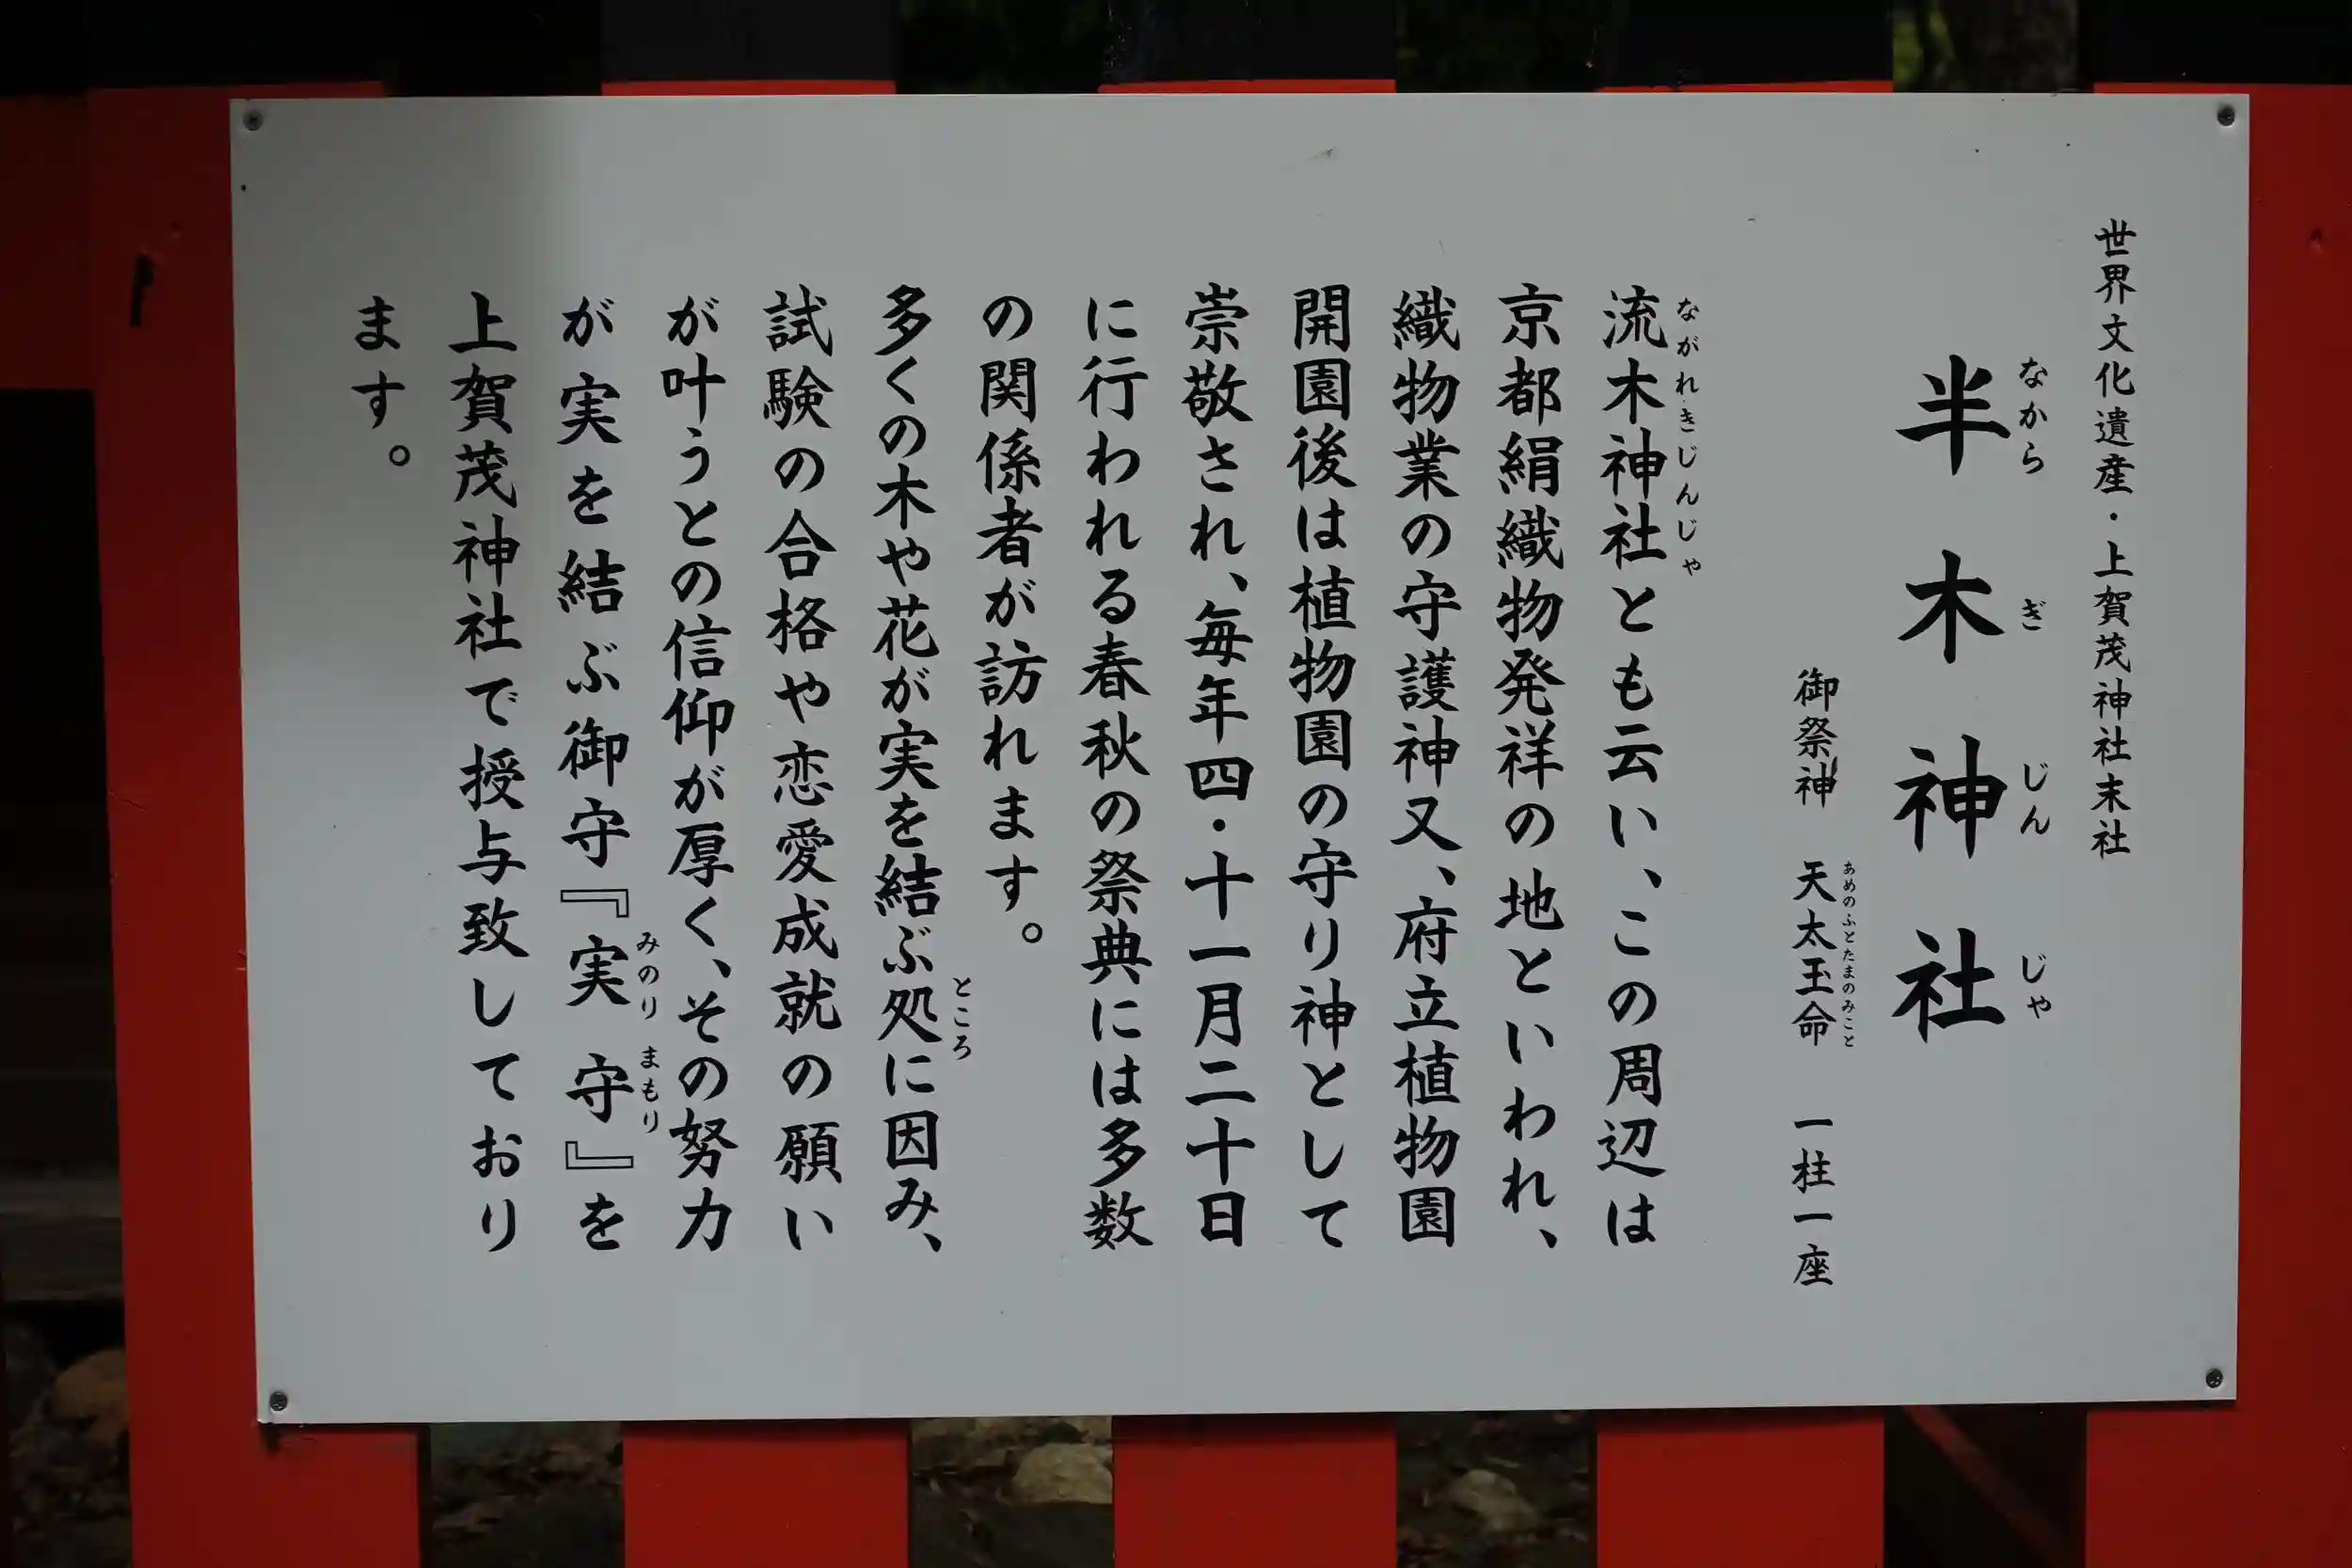 世界文化遺産・上賀茂神社末社
半木神社
なからぎじんじゃ
御祭神 天太玉命 一柱一座
あめのふとたまのみこと
流木神社とも云い、この周辺は
ながれきじんじゃ
京都絹織物発祥の地といわれ、
織物業の守護神又、府立植物園
開園後は植物園の守り神として
崇敬され、毎年四・十一月二十日
に行われる春秋の祭典には多数
の関係者が訪れます。
多くの木や花が実を結ぶ処に因み、
ところ
試験の合格や恋愛成就の願い
が叶うとの信仰が厚く、その努力
が実を結ぶ御守『実守』を
みのり まもり
上賀茂神社で授与致しており
ます。